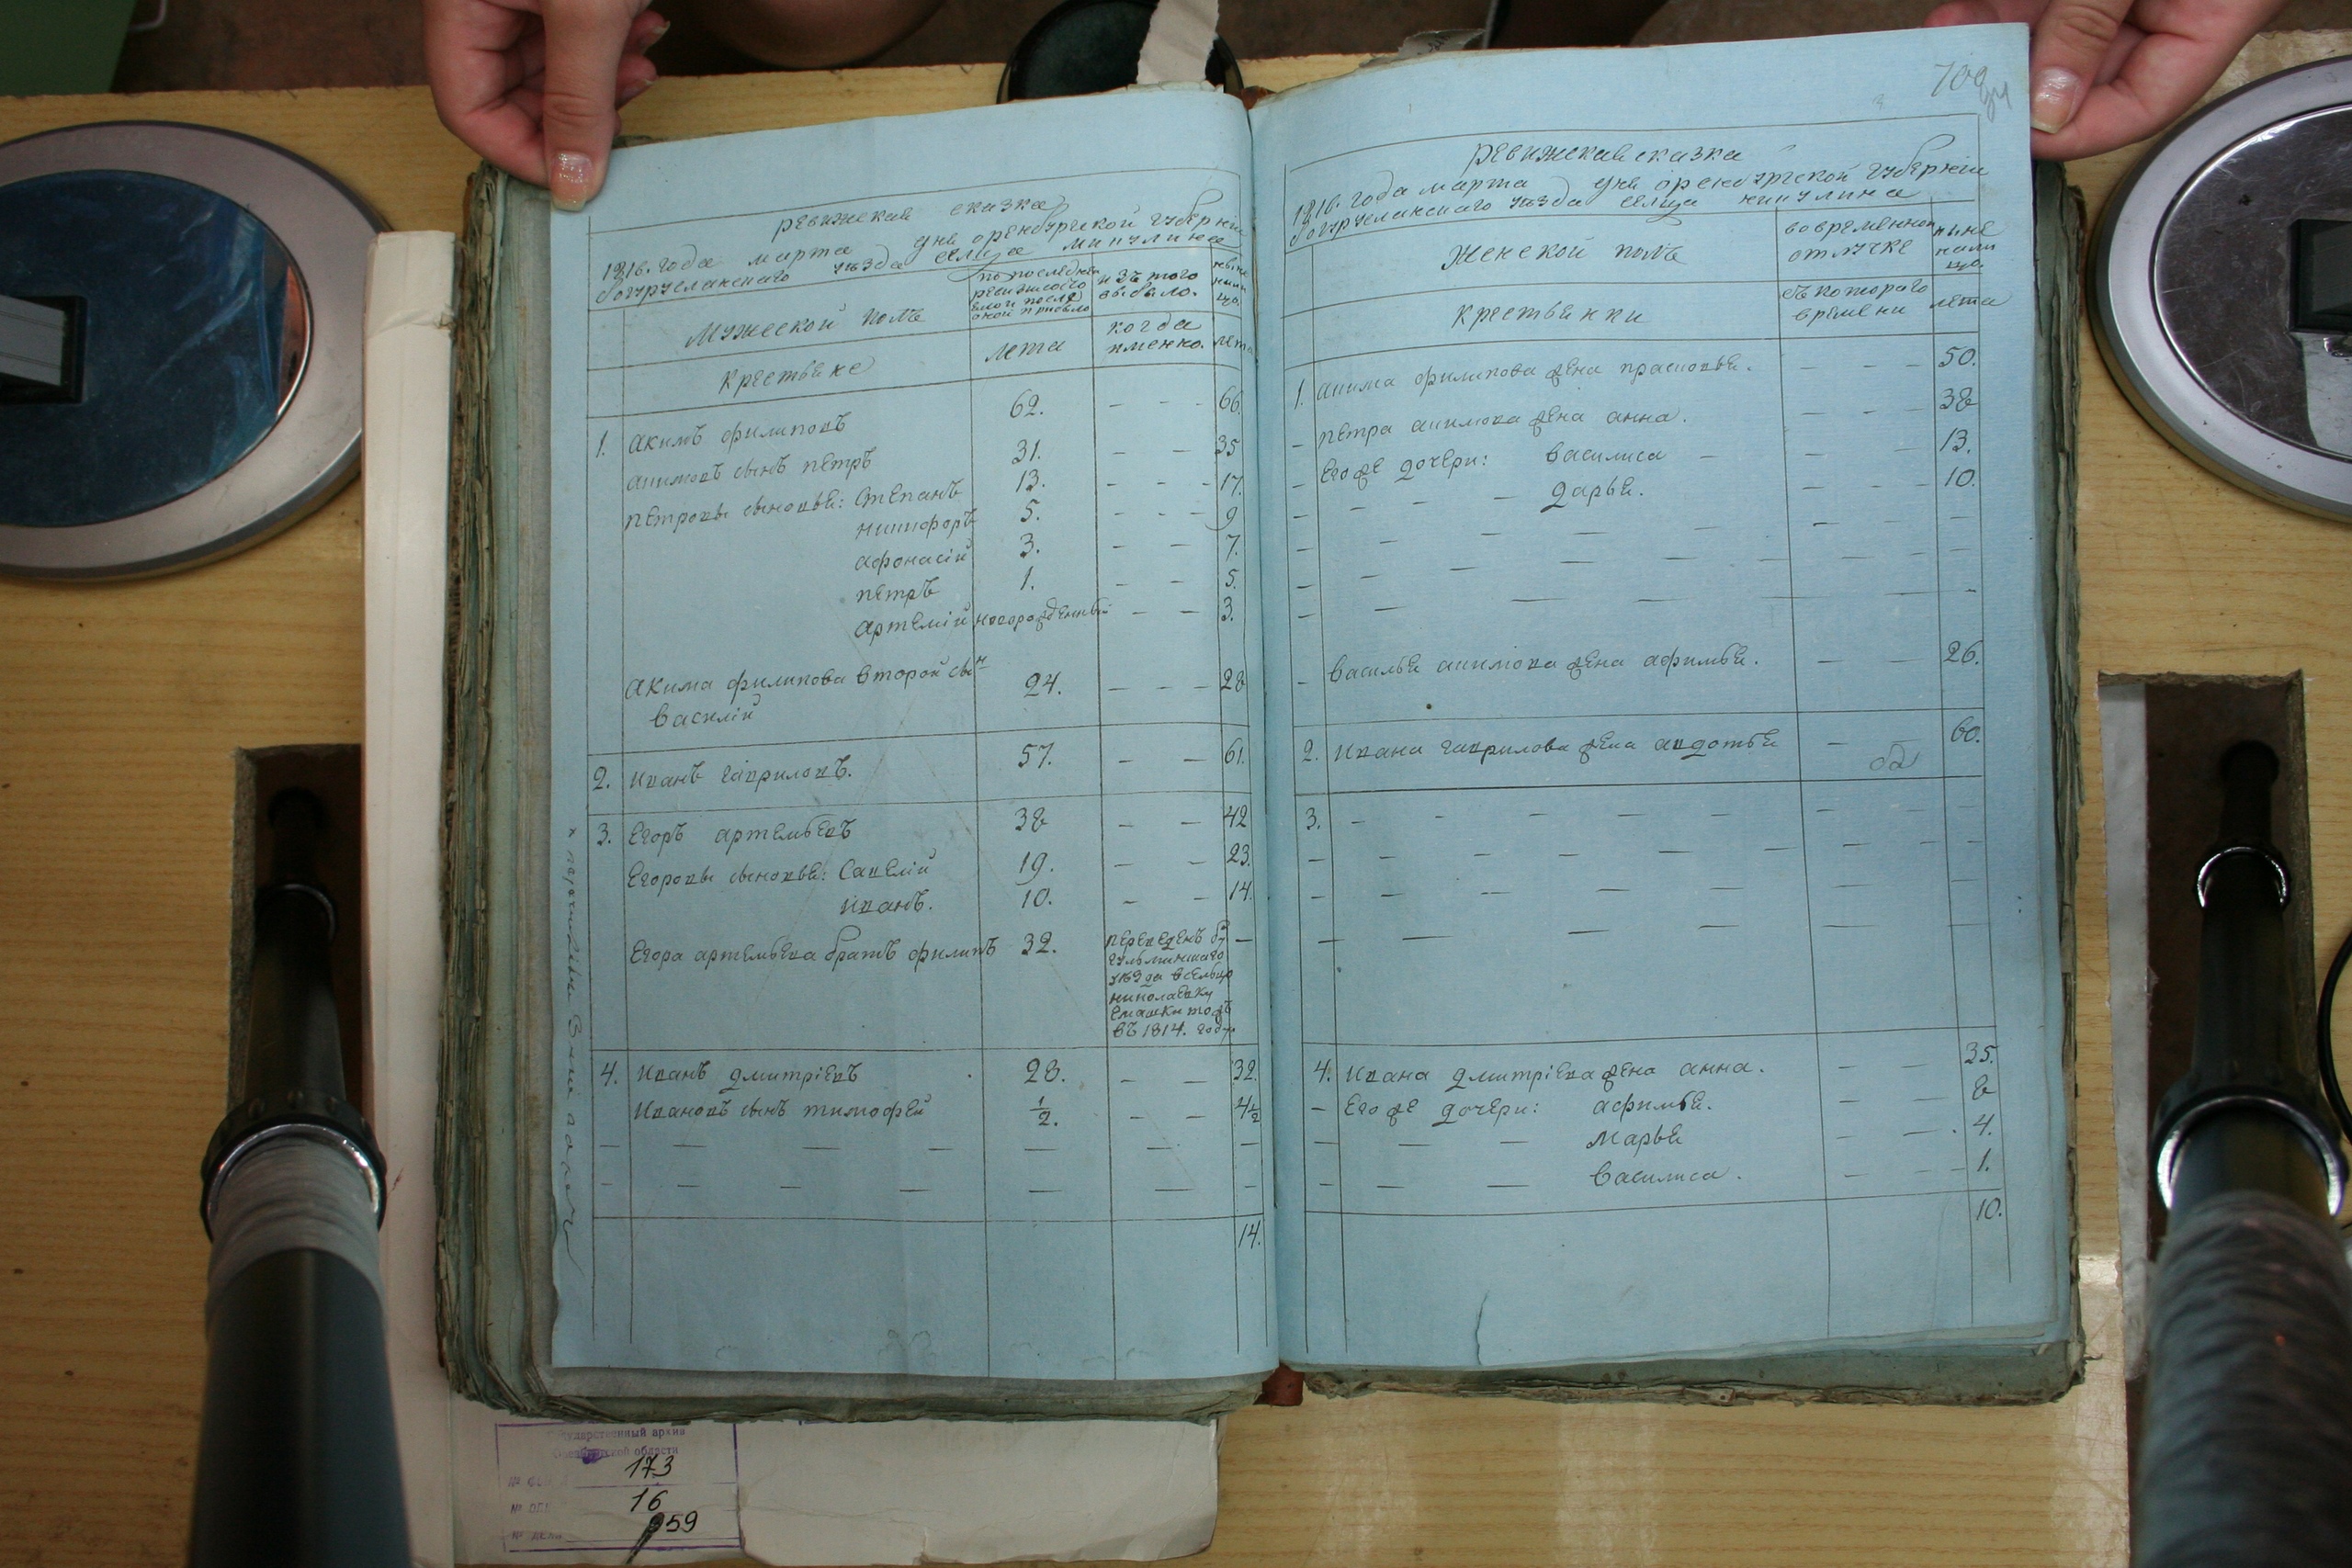 ревижская сказка
1816. года марта дня оренбургской губернiи
богурусланскаго уѣзда сельца микулина
Мужеской полъ
по последней
ревизiи состояло
и после
оной прибыло
изъ того
выбыло.
ныне
на ли
цо.
Крестьяне
лета
когда
именно.
лета
1. Акимъ филиповъ 62. - - - 66.
акимовъ сынъ петръ 31. - - 35
петровы сыновья: Степанъ 13. - - - 17.
никифоръ 5. - - - 9
афонасiй 3. - - 7.
петръ 1. - - 5.
артемiй новорожденный - - 3.
Акима филипова второй сын 24. - - - 28
василiй
2. иванъ гавриловъ. 57. - - 61.
3. Егоръ артемьевъ 38 - - 42
Егоровы сыновья: Савелiй 19. - - 23.
иванъ. 10. - - 14.
Егора артемьева братъ филипъ 32. переведенъ бу —
гульминскаго
уѣзда в сельцо
николаевку
Емашки тожъ
въ 1814. году
4. иванъ дмитрiевъ 28. - - 32.
ивановъ сынъ тимофей 1/2. - - 4 1/2
14.
ревижская сказка
1816. года марта дня оренбургской губернiи
богурусланскаго уѣзда сельца микулина
Женской полъ
во временной
отлучке
ныне
нали
цо.
Крестьянки
съ котораго
времени
лета
1. акима филипова жена прасковья. - - - 50.
- петра акимова жена анна. - - - 38
- Его же дочери: василиса - - 13.
- - - дарья. - - - 10.
- василья акимова жена афимья. - - 26.
2. ивана гаврилова жена авдотья - - 60.
3. - - - - - - -
4. ивана дмитрiева жена анна. - - 35.
- Его же дочери: афимья. - - 8
- - - марья - - 4.
- - - василиса. - - - 1.
10.
Государственный архив
Оренбургской области
№ фон 173
№ оп. 16
№ дела 959